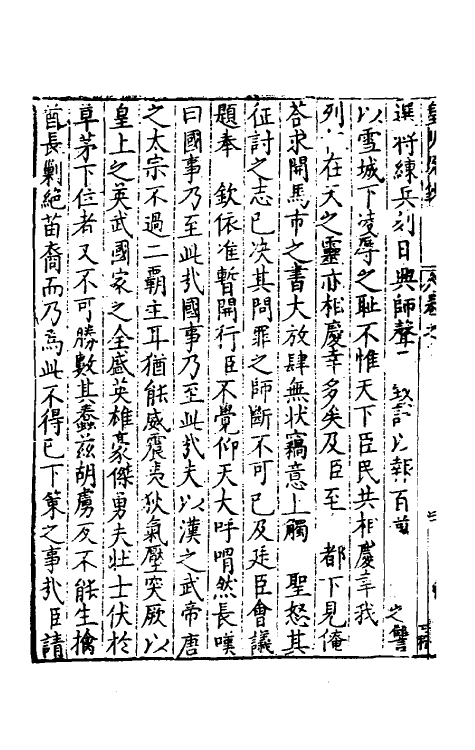 選將練兵刻日興師聲 致討以報百 之讐
以雪城下凌辱之恥不惟天下臣民共相慶幸我
列 在天之靈亦相慶幸多矣及臣至 都下見俺
荅求開馬市之書大放肆無状竊意上觸 聖怒其
征討之志已决其問罪之師斷不可已及廷臣會議
題奉 欽依准暫開行臣不覺仰天大呼喟然長嘆
曰國事乃至此㢤國事乃至此㢤夫以漢之武帝唐
之太宗不過二霸主耳猶能威震夷狄氣壓突厥以
皇上之英武國家之全盛英雄豪傑勇夫壮士伏於
草茅下位者又不可勝數其蠢茲胡虜反不能生擒
酋長剿絕苗裔而乃爲此不得已下策之事㢤臣請